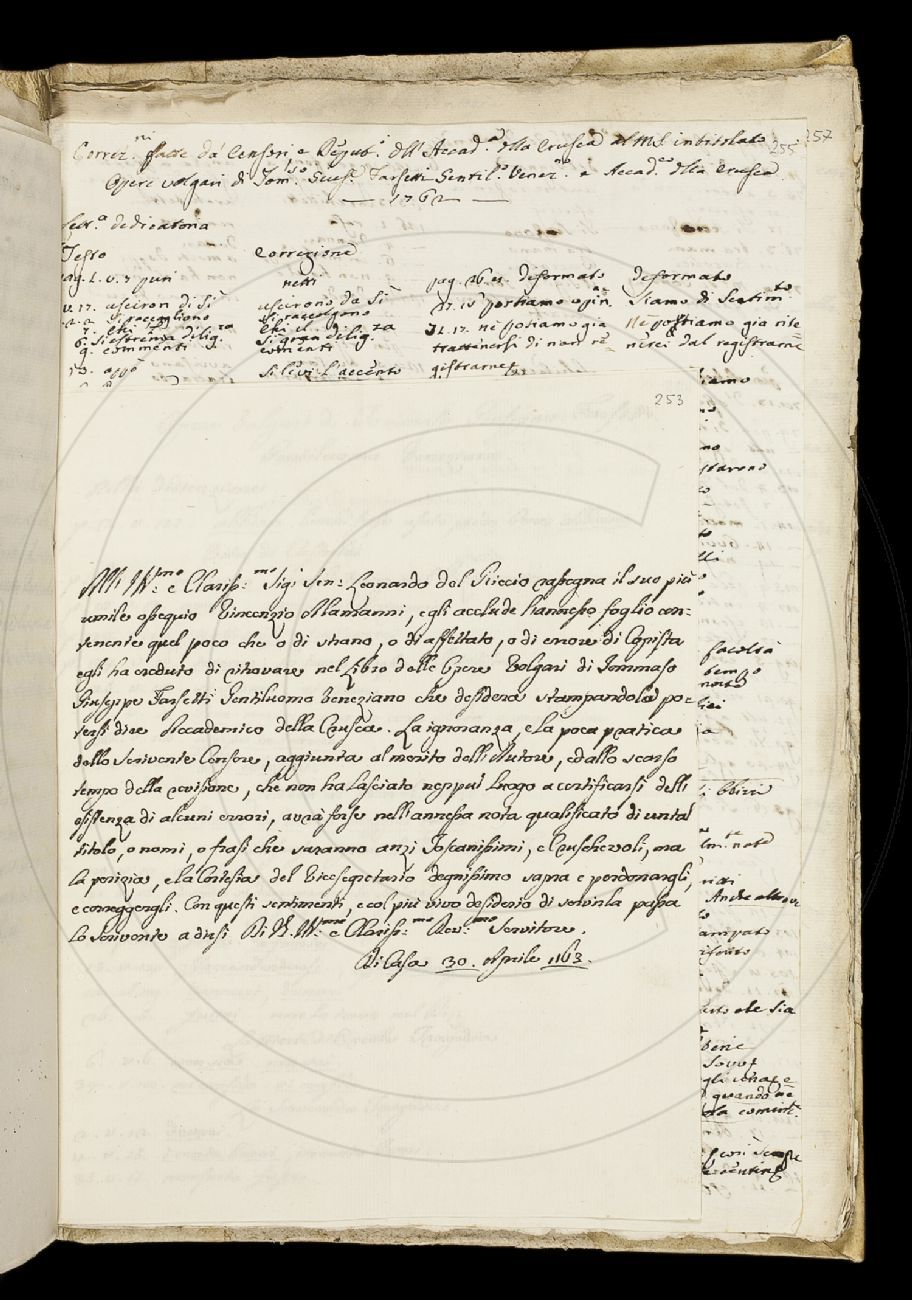 257
255
Correz.ni fatte da' Censori, e Deput.i dell' Accad.a della Crusca al MS. intitolato
Opere volgari di Tom.so Gius.e Farsetti Gentil.o Venez.o e Accad.co della Crusca
— 1762 —
Lett.a dedicatoria
Testo Correzione
pag. 1. v. 7 puri netti pag. 26. deformato deformato
v. 17. usciron di Si uscirono da Si 27. 10 portiamo opin. siamo di Sentim.to
si raccogliono si raccolgono
si estrema dilig.za si gran dilig.za 32. 17. ne potiamo già Ne possiamo già rite
9. commenti comenti trattenerci di non re nerci dal registrarne
10. si levi l'accento gistrarne
253
All' Ill.mo e Clariss.mo Sig.r Sen.r Leonardo del Riccio rassegna il suo più
umile ossequio Vincenzio Alamanni, e gli acclude l'annesso foglio con-
tenente quel poco che o di strano, o di affettato, o di errore di Copista
egli ha creduto di ritrovare nel Libro delle Opere Volgari di Tommaso
Giuseppe Farsetti Gentiluomo Veneziano che desidera stampandole po-
tersi dire Accademico della Crusca. La ignoranza, e la poca pratica
dello Scrivente Censore, aggiunta al merito dell'Autore, ed allo scarso
tempo della revisione, che non ha lasciato neppur luogo a certificarsi dell'
esistenza di alcuni errori, avrà forse nell'annessa nota qualificato di un tal
titolo, o nomi, o frasi che saranno anzi Toscanissimi, e Cruschevoli, ma
la perizia, e la Cortesia del Vicesegretario degnissimo saprà e perdonargli,
e correggergli. Con questi sentimenti, e col più vivo desiderio di servirla passa
lo Scrivente a dirsi Di V.S. Ill.ma e Clariss.ma Dev.mo Servitore.
Di Casa 30. Aprile 1763.
facoltà
tempo
Anche altrove
quando ne